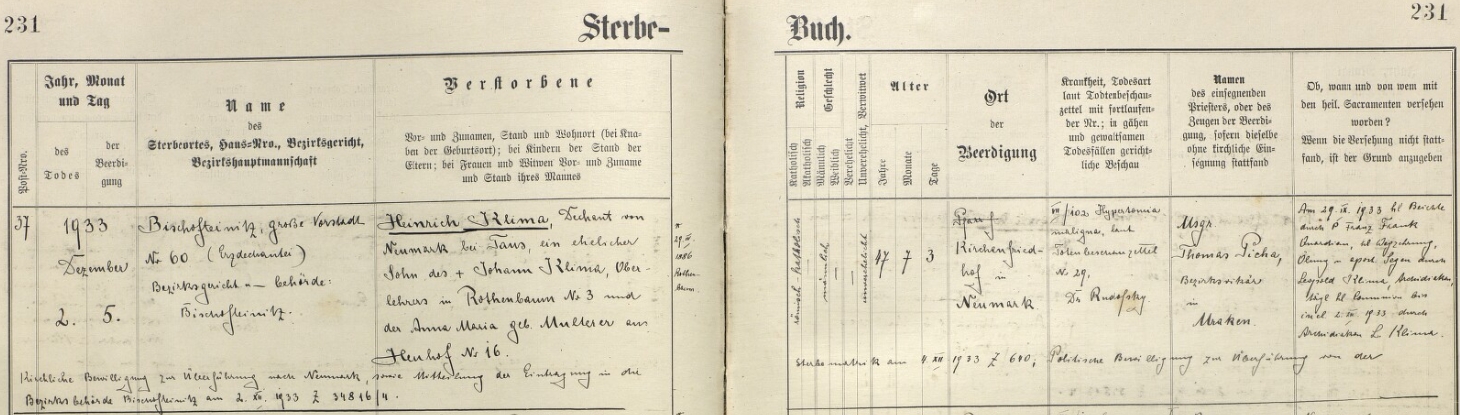 231
Sterbe-
Jahr, Monat
und Tag
des
Todes
der
Beerdi-
gung
Post-Nro.
Name
des
Sterbeortes, Haus-Nro., Bezirksgericht,
Bezirkshauptmannschaft
Verstorbene
Vor- und Zunamen, Stand und Wohnort (bei Kna-
ben der Geburtsort); bei Kindern der Stand der
Eltern; bei Frauen und Witwen Vor- und Zuname
und Stand ihres Mannes
37
1933
Dezember
2. 5.
Bischofteinitz, große Vorstadt
No 60 (Erzdechantei)
Bezirksgericht -"- behörde:
Bischofteinitz.
Heinrich Klima, Dechant von
Neumark bei Taus, ein ehelicher
Sohn des + Johann Klima, Ober-
lehrers in Rothenbaum No 3 und
der Anna Maria geb. Multerer aus
No 16.
* 29
1886
Rothen-
baum
Kirchliche Bewilligung zur Überführung nach Neumark, sowie Mitteilung der Eintragung in die
Bezirksbehörde Bischofteinitz am 2. XII. 1933 Z 34816/4.
231
Buch.
Religion
Katholisch
Akatholisch
Geschlecht
Männlich
Weiblich
Verehelicht
Unverehelicht, Verwitwet
Alter
Jahre
Monate
Tage
Ort
der
Beerdigung
Krankheit, Todesart
laut Todtenbeschau-
zettel mit fortlaufen-
der Nr.; in gähen
und gewaltsamen
Todesfällen gericht-
liche Beschau
Namen
des einsegnenden
Priesters, oder des
Zeugen der Beerdi-
gung, sofern dieselbe
ohne kirchliche Ein-
segnung stattfand
Ob, wann und von wem mit
den heil. Sacramenten versehen
worden?
Wenn die Versehung nicht statt-
fand, ist der Grund anzugeben
römisch-katholisch
männlich
—
—
unverehelicht
47 7 3
Pfarr
Kirchenfried-
hof in
Neumark
VII/102 Hypertonia
maligna, laut
Totenbeschauzettel
No 29,
Dr Rudofsky.
Msgr.
Thomas Picha,
Bezirksvikär
in
Mraken.
Am 29. 1933 hl Beichte
durch P Franz Frank
Guardian, hl
Ölung u Segen durch
Leopold Klima, Archidiakon,
tägl hl Communion bis
incl 2. XII 1933 durch
Archidiakon L Klima.
Sterbematrik am 4 XII 1933 Z 640, Politische Bewilligung zur Überführung von der